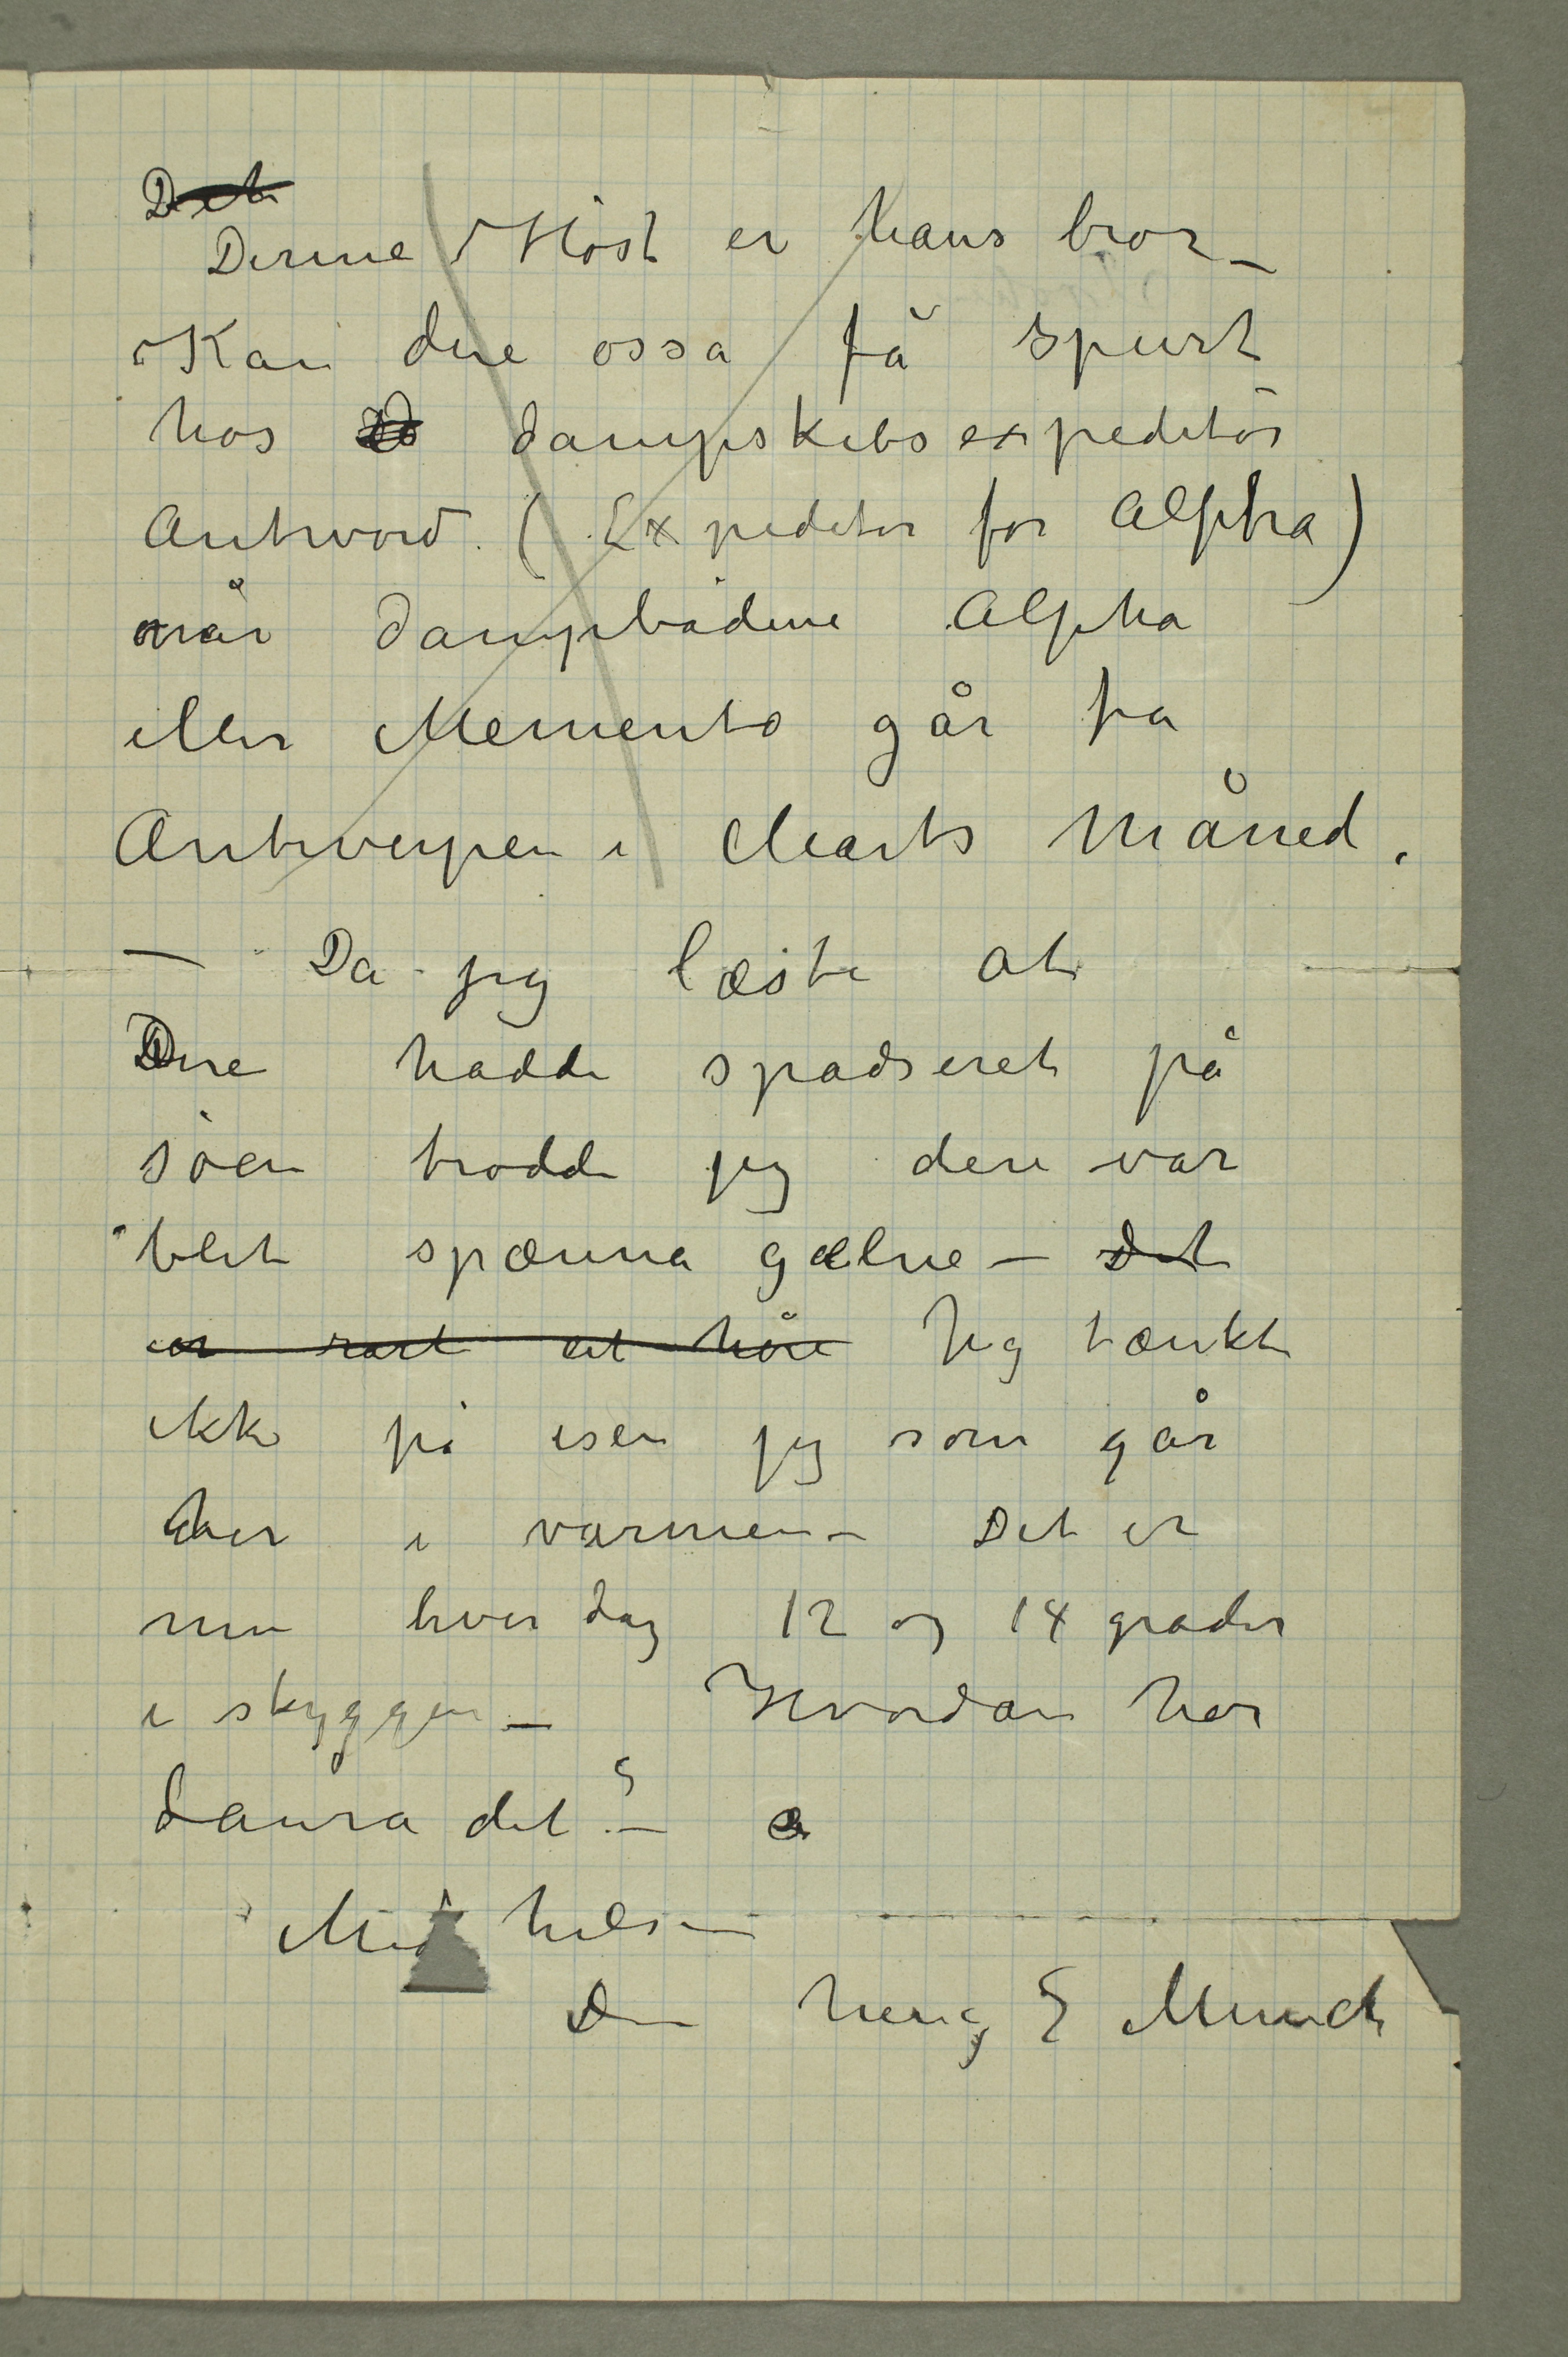 Det
Denne Høst er hans bror –
Kan dere osså få spurt
hos dampskibsexpeditør
Antword. (Expeditør for Alpha)
når dampbådene Alpha
eller Memento går fra
Antwerpen i Marts Måned.
— Da jeg læste at
Dere hadde spadseret på
søen trodde jeg dere var
blet spænna gælne – Det
er rart at høre Jeg tænkte
ikke på isen jeg som går
her i varmen – Det er
nu hver dag 12 og 14 grader
i skyggen – Hvordan har
Laura det? –
Med hilsen
Din heng E Munch